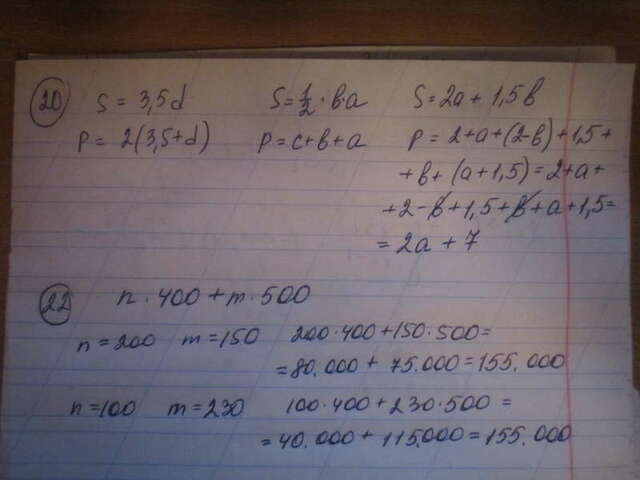 20
S = 3,5d
P = 2(3,5+d)
S = 1/2 · b·a
P = c+b+a
S = 2a + 1,5b
P = 2+a+(2-b)+1,5+
+b+(a+1,5)=2+a+
+2-b+1,5+b+a+1,5=
= 2a + 7
22
n · 400 + m · 500
n = 200 m = 150 200·400+150·500=
=80.000 + 75.000=155.000
n=100 m = 230 100·400+230·500 =
= 40.000+ 115.000=155.000